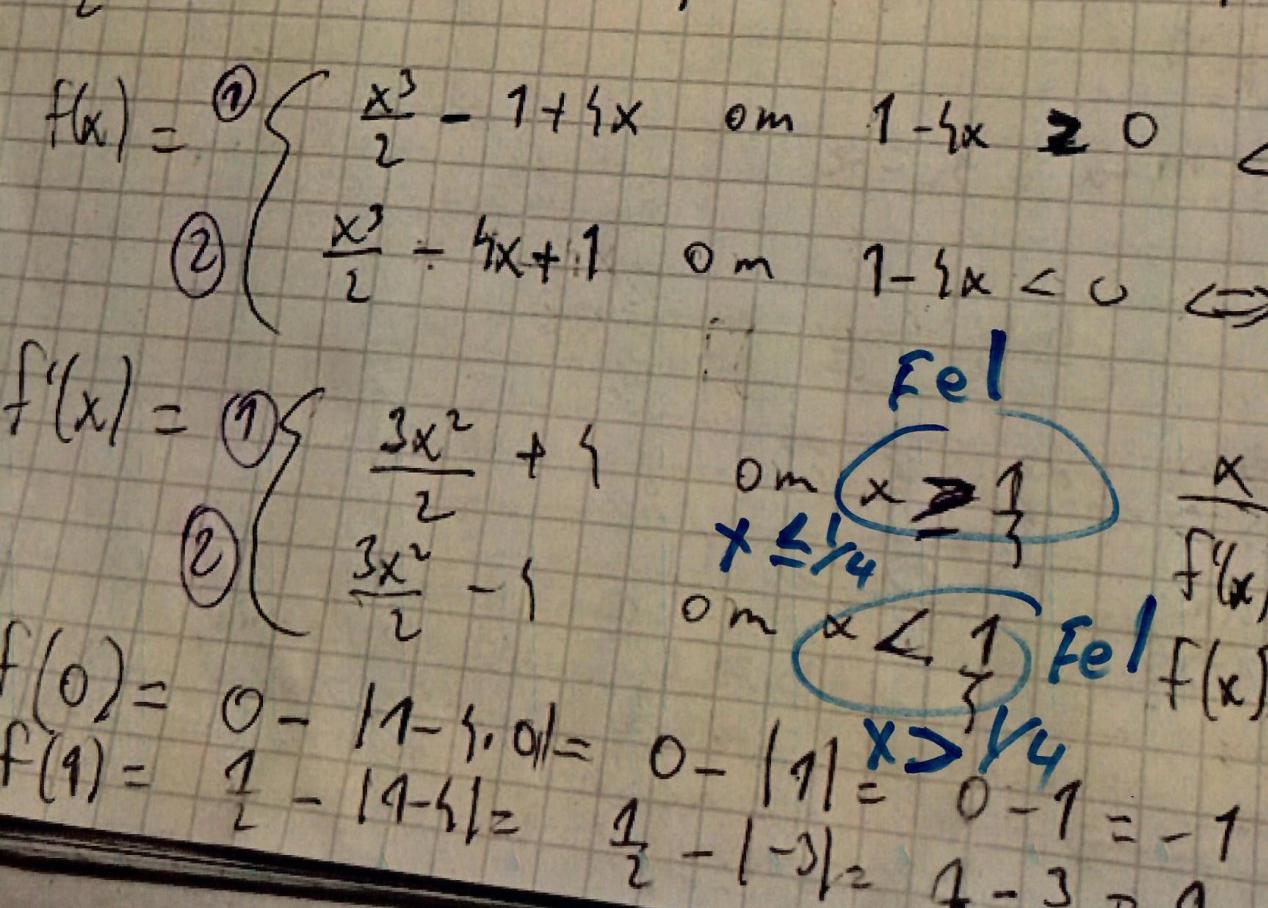 f(x) = ① { x³/2 - 1 + 4x om 1 - 4x ≥ 0 <
② x³/2 - 4x + 1 om 1 - 4x < 0 <=>
Fel
f'(x) = ① { 3x²/2 + 4 om x ≥ 1/4
x ≤ 1/4
② 3x²/2 - 4 om x < 1/4 Fel
x > 1/4
x
f'(x)
f(x)
f(0) = 0 - |1 - 4·0| = 0 - |1| = 0 - 1 = -1
f(1) = 1/2 - |1-4| = 1/2 - |-3| = 1 - 3